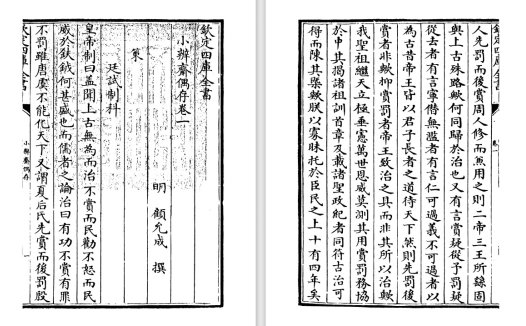 欽定四庫全書
小辨齋偶存卷一
明 顧允成 撰
策
廷試制科
皇帝制曰蓋聞上古無為而治不賞而民勸不怒而民
威於鈇鉞何甚盛也而儒者之論治曰有功不賞有罪
不罰雖唐虞不能化天下又謂夏后氏先賞而後罰殷
欽定四庫全書
小辨齋偶存
欽定四庫全書
人先罰而後賞周人修而兼用之則二帝三王所繇固
與上古殊路歟何同歸於治也又有言賞疑從予罰疑
從去者有言寧僭無濫者有言仁可過義不可過者以
為古昔帝王皆以君子長者之道待天下然則先罰後
賞者非歟抑賞罰者帝王致治之具而非其所以治歟
我聖祖繼天立極垂憲萬世恩威莫測其用賞罰務協
於中其揭諸祖訓首章及載諸聖政紀者同符古治可
得而陳其槩歟朕以寡昧托於臣民之上十有四年矣